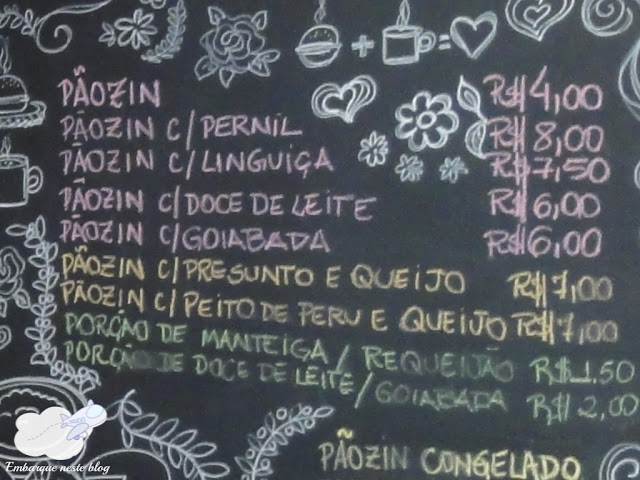 PÃOZIN R$ 4,00
PÃOZIN C/PERNIL R$ 8,00
PÃOZIN C/LINGUIÇA R$ 7,50
PÃOZIN C/DOCE DE LEITE R$ 6,00
PÃOZIN C/GOIABADA R$ 6,00
PÃOZIN C/PRESUNTO E QUEIJO R$ 7,00
PÃOZIN C/PEITO DE PERU E QUEIJO R$ 7,00
PORÇÃO DE MANTEIGA / REQUEIJÃO R$ 1.50
PORÇÃO DE DOCE DE LEITE / GOIABADA R$ 2,00
PÃOZIN CONGELADO
Embarque neste blog